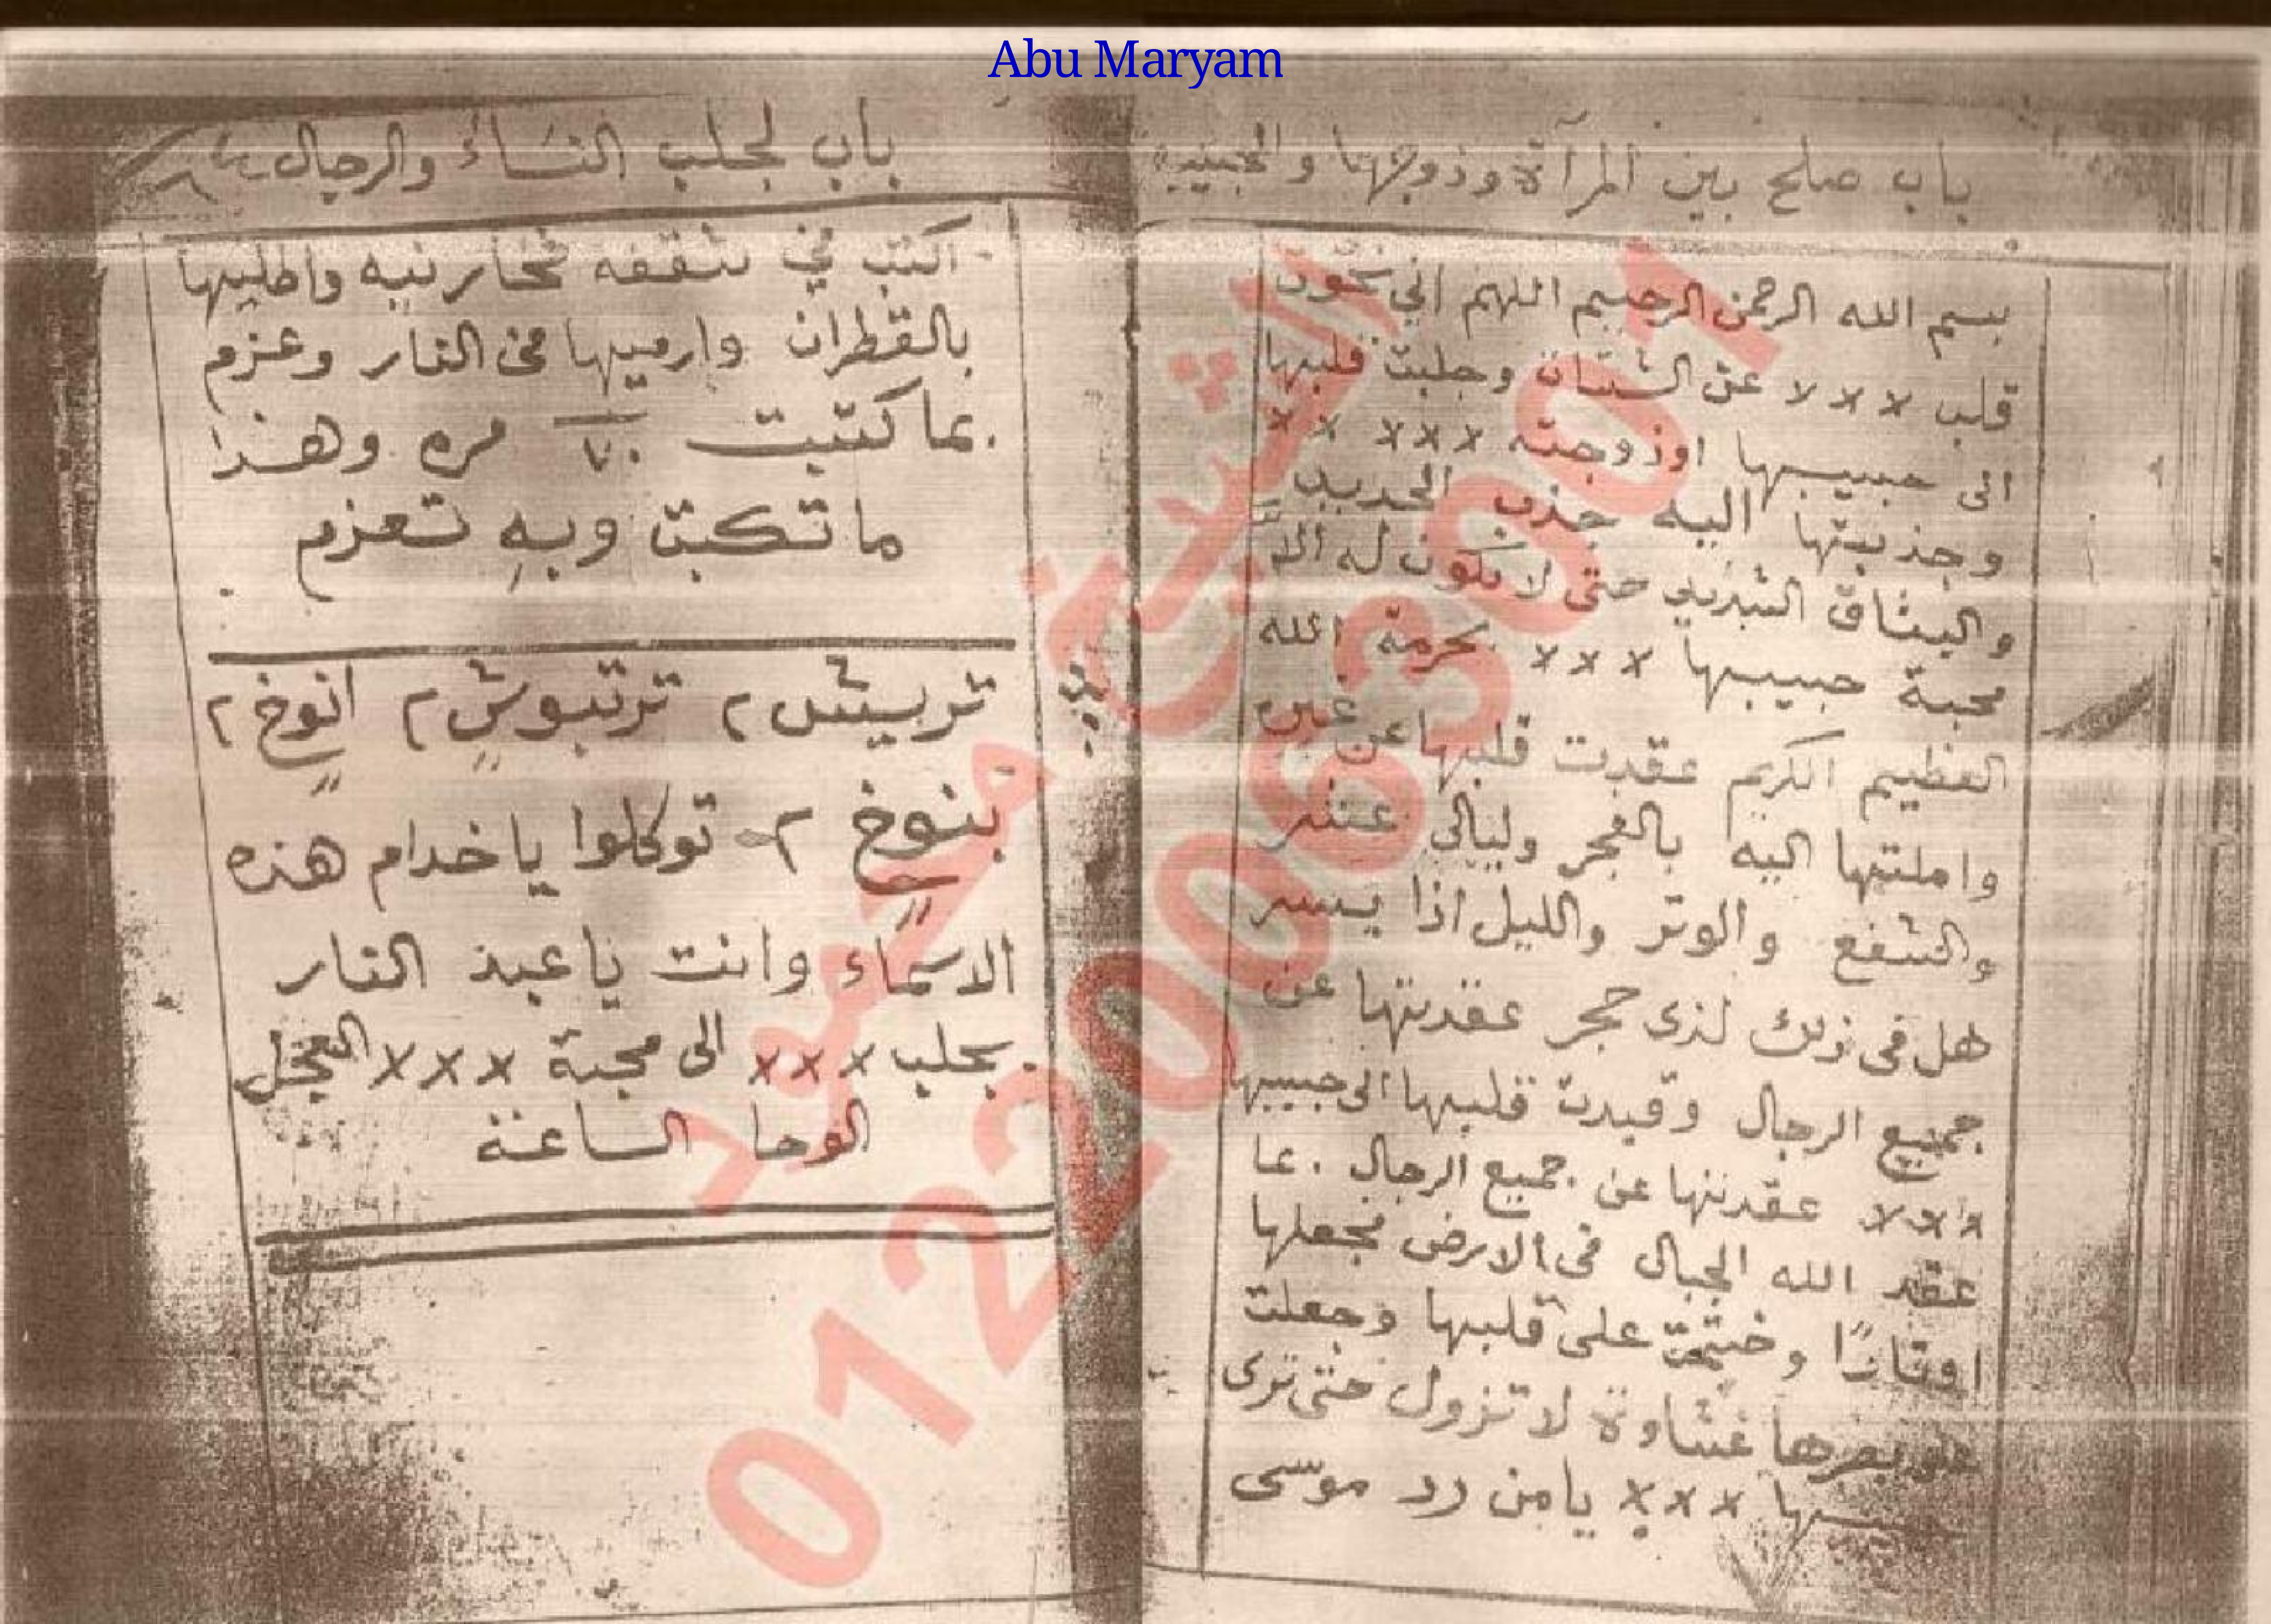 Abu Maryam
باب صلح بين المرآة وزوجها والحبيبة
بسم الله الرحمن الرحيم اللهم اني
قلب ××× عن الشتات وجلبت قلبها
الى حبيبها اوزوجته ××× ××
وجذبتها اليه جذب الحديد
والميثاق الشديد حتى لا يكون له الا
محبة حبيبها ××× بحرمة الله
العظيم الكريم عقدت قلبها عن غير
واملتها اليه بالفجر وليالي عشر
والشفع والوتر والليل اذا يسر
هل فى ذلك لذى حجر عقدتها عن
جميع الرجال وقيدت قلبها الى حبيبها
××× عقدتها عن جميع الرجال
عقد الله الجبال فى الارض فجعلها
اوتادًا وختمت على قلبها وجعلت
على بصرها غشاوة لا تزول حتى ترى
××× يا من رد موسى
باب لجلب النساء والرجال
اكتب في شقفه فخارنيه واطليها
بالقطران وارميها فى النار وعزم
بما كتبت ٧٠ مره وهذا
ما تكتب وبهِ تعزم
تربيش ٢ ترتبوشٍ ٢ انوخٍ ٢
بنوخٍ ٢ توكلوا يا خدام هذه
الاسماء وانت يا عبد النار
بجلب ××× الى محبة ××× العجل
الوحا الساعة
الشيخ محمود
01220063001